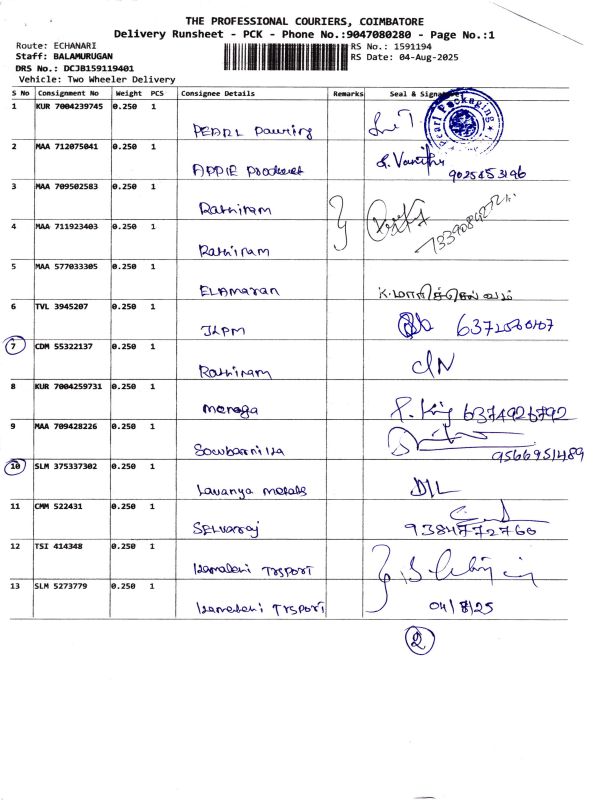 THE PROFESSIONAL COURIERS, COIMBATORE
Delivery Runsheet - PCK - Phone No.:9047080280 - Page No.:1
Route: ECHANARI RS No.: 1591194
Staff: BALAMURUGAN RS Date: 04-Aug-2025
DRS No.: DCJB159119401
Vehicle: Two Wheeler Delivery
S No Consignment No Weight PCS Consignee Details Remarks Seal & Signature
1 KUR 7004239745 0.250 1
PEARL
Pearl Packaging
2 MAA 712075041 0.250 1 S. Vanitha
APPIE
3 MAA 709502583 0.250 1
Rathiram
4 MAA 711923403 0.250 1
Rathiram
5 MAA 577033305 0.250 1
ELAMARAN
6 TVL 3945207 0.250 1
JLPM
7 CDM 55322137 0.250 1 C/N
Rathiram
8 KUR 7004259731 0.250 1
6374926792
9 MAA 709428226 0.250 1
9566951489
10 SLM 375337302 0.250 1 D/L
Lavanya metals
11 CMM 522431 0.250 1
SELVARAJ 9384772760
12 TSI 414348 0.250 1
TRSPORT
13 SLM 5273779 0.250 1
TRSPORT 04/8/25
2